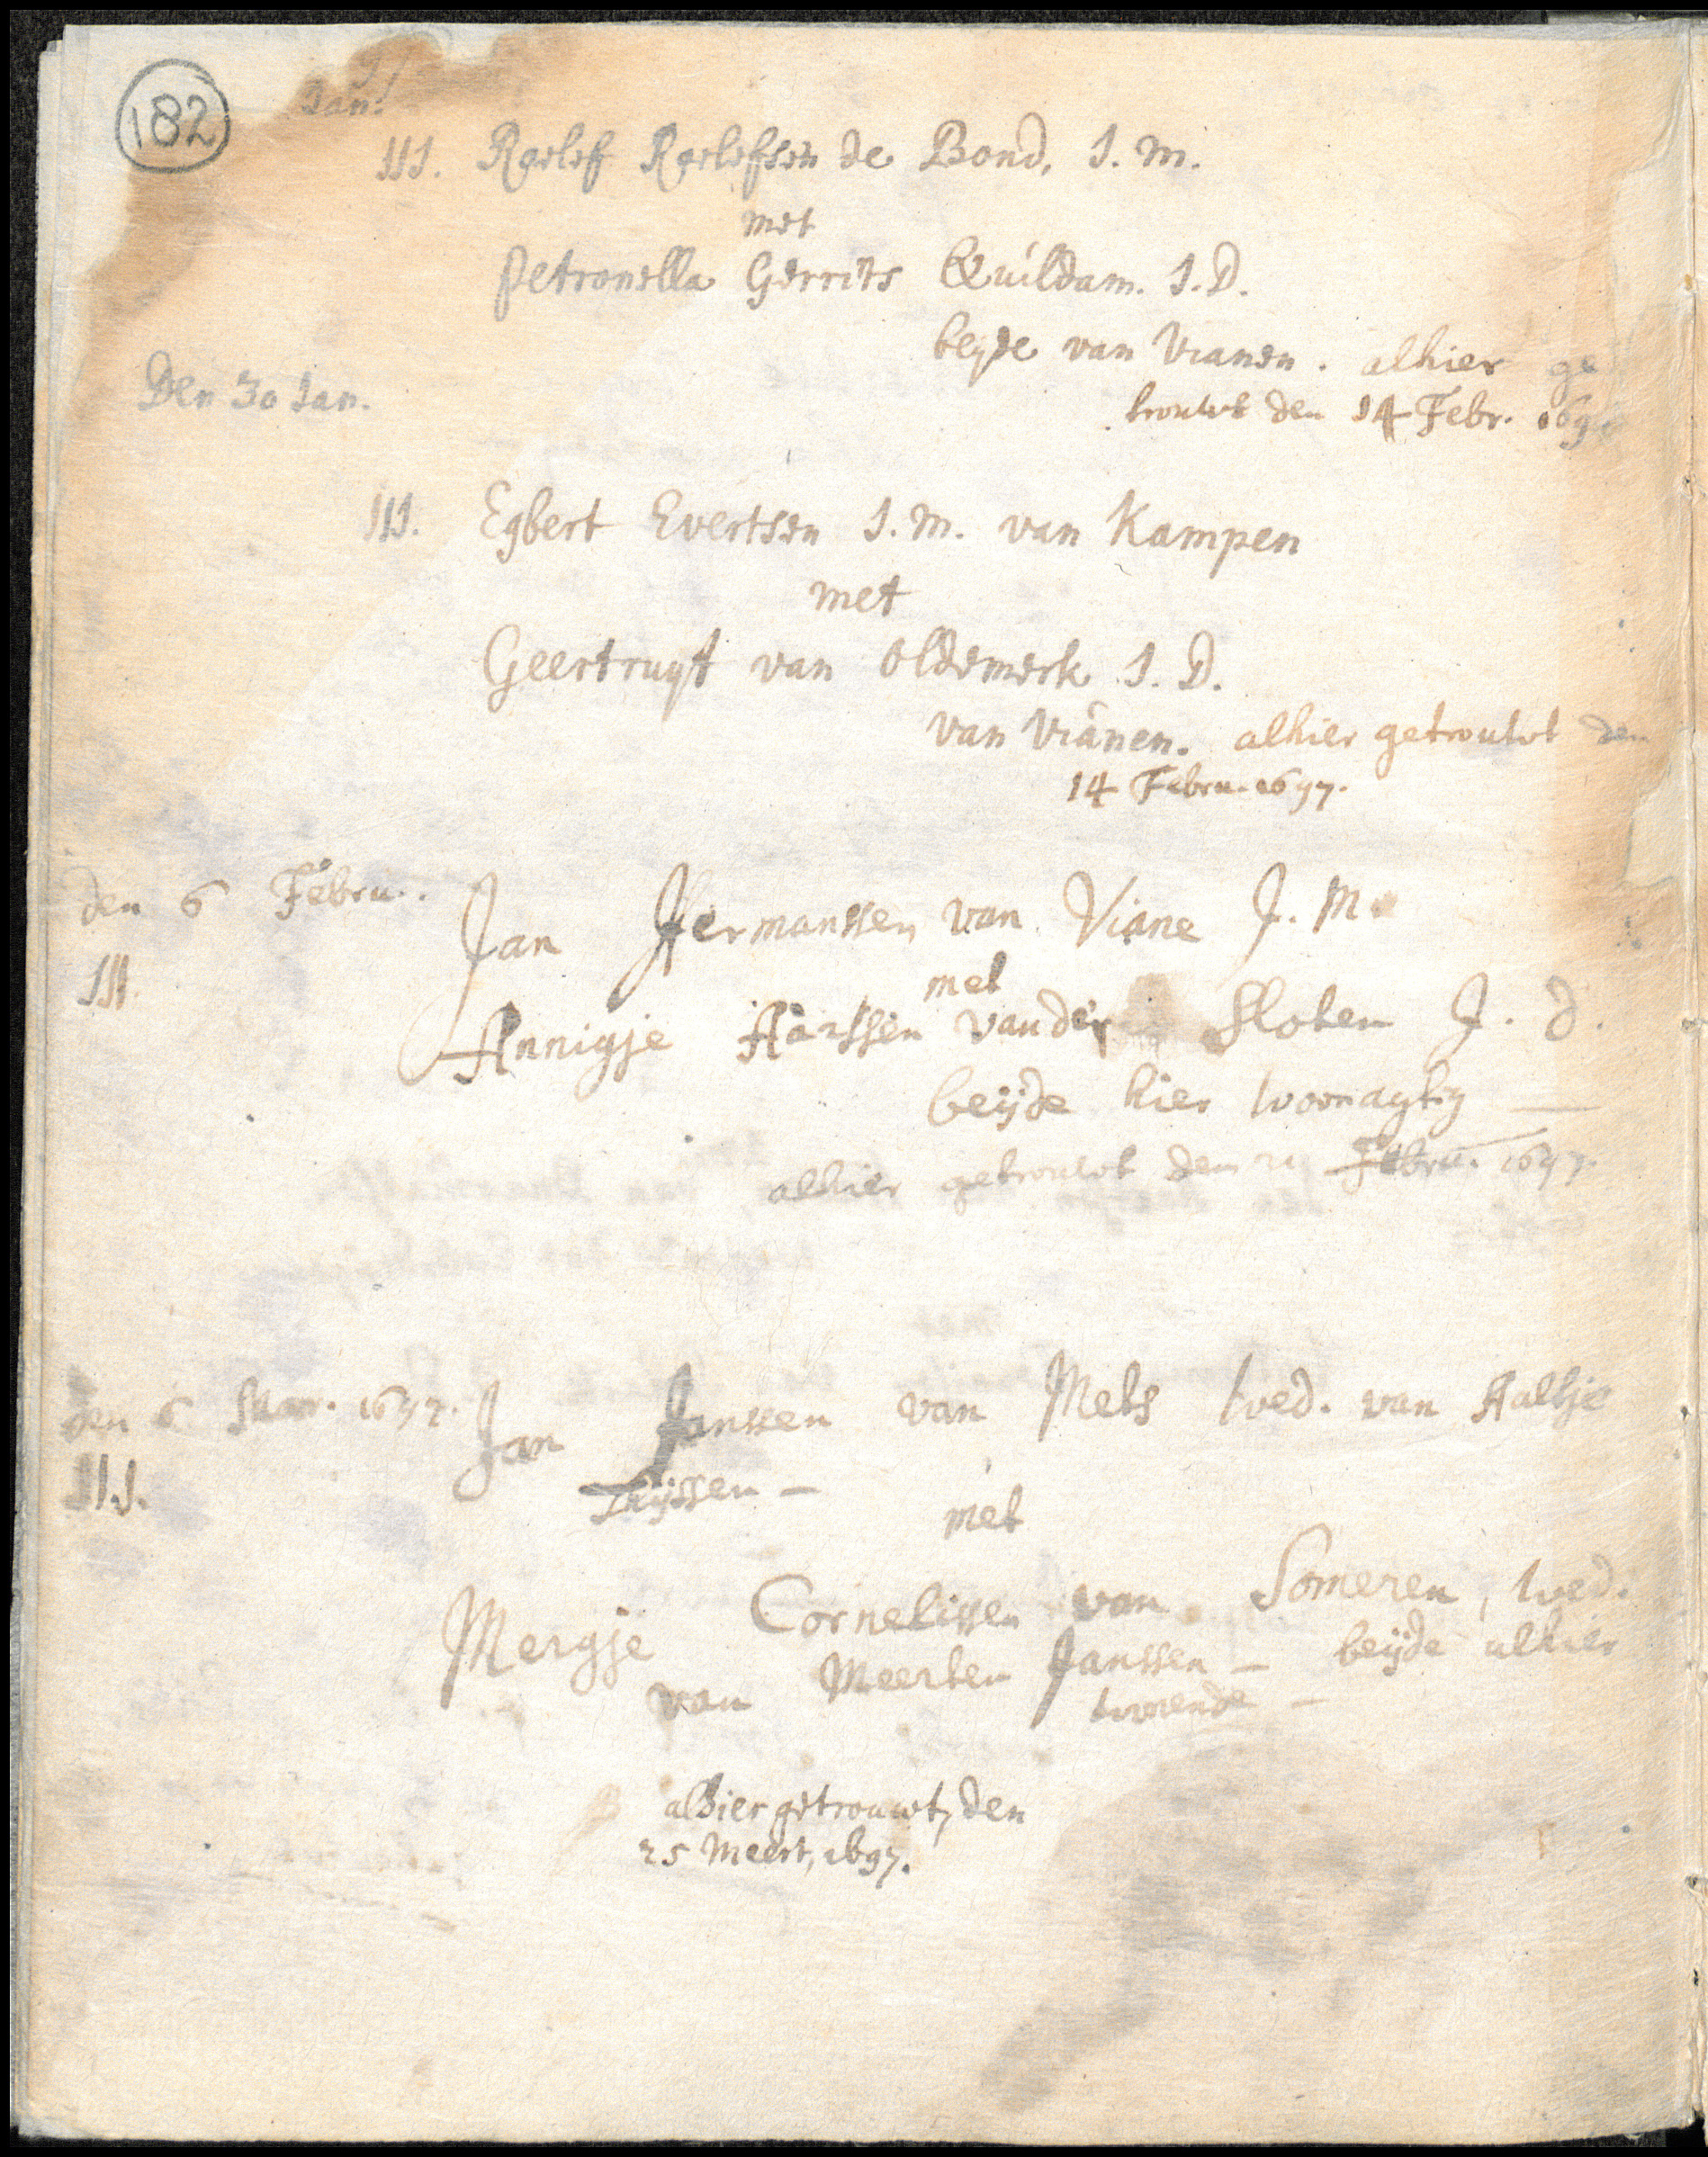 182
Jan:
III. Roelof Roelofsen de Bond. J. M.
met
Petronella Gerrits Quildam. J. D.
beyde van Vianen. alhier ge
Den 30 Jan.
trouwt den 14 Febr. 169
III. Egbert Evertsen J. M. van Kampen
met
Geertruyt van Oldemerk J. D.
van Vianen. alhier getrouwt den
14 Febru. 1697.
den 6 Febru.. Jan Hermanssen van Viane J. M.
III. met
Annigje Harssen vander Sloten J. D.
beijde hier woonagtig —
alhier getrouwt den 21 Febru. 1697.
den 6 Mar. 1697. Jan Janssen van Mets wed. van Aaltje
III. Thijssen —
met
Mergje Cornelissen van Someren, wed.
van Meerten Janssen — beijde alhier
wonende —
alhier getrouwt, den
25 Meert, 1697.